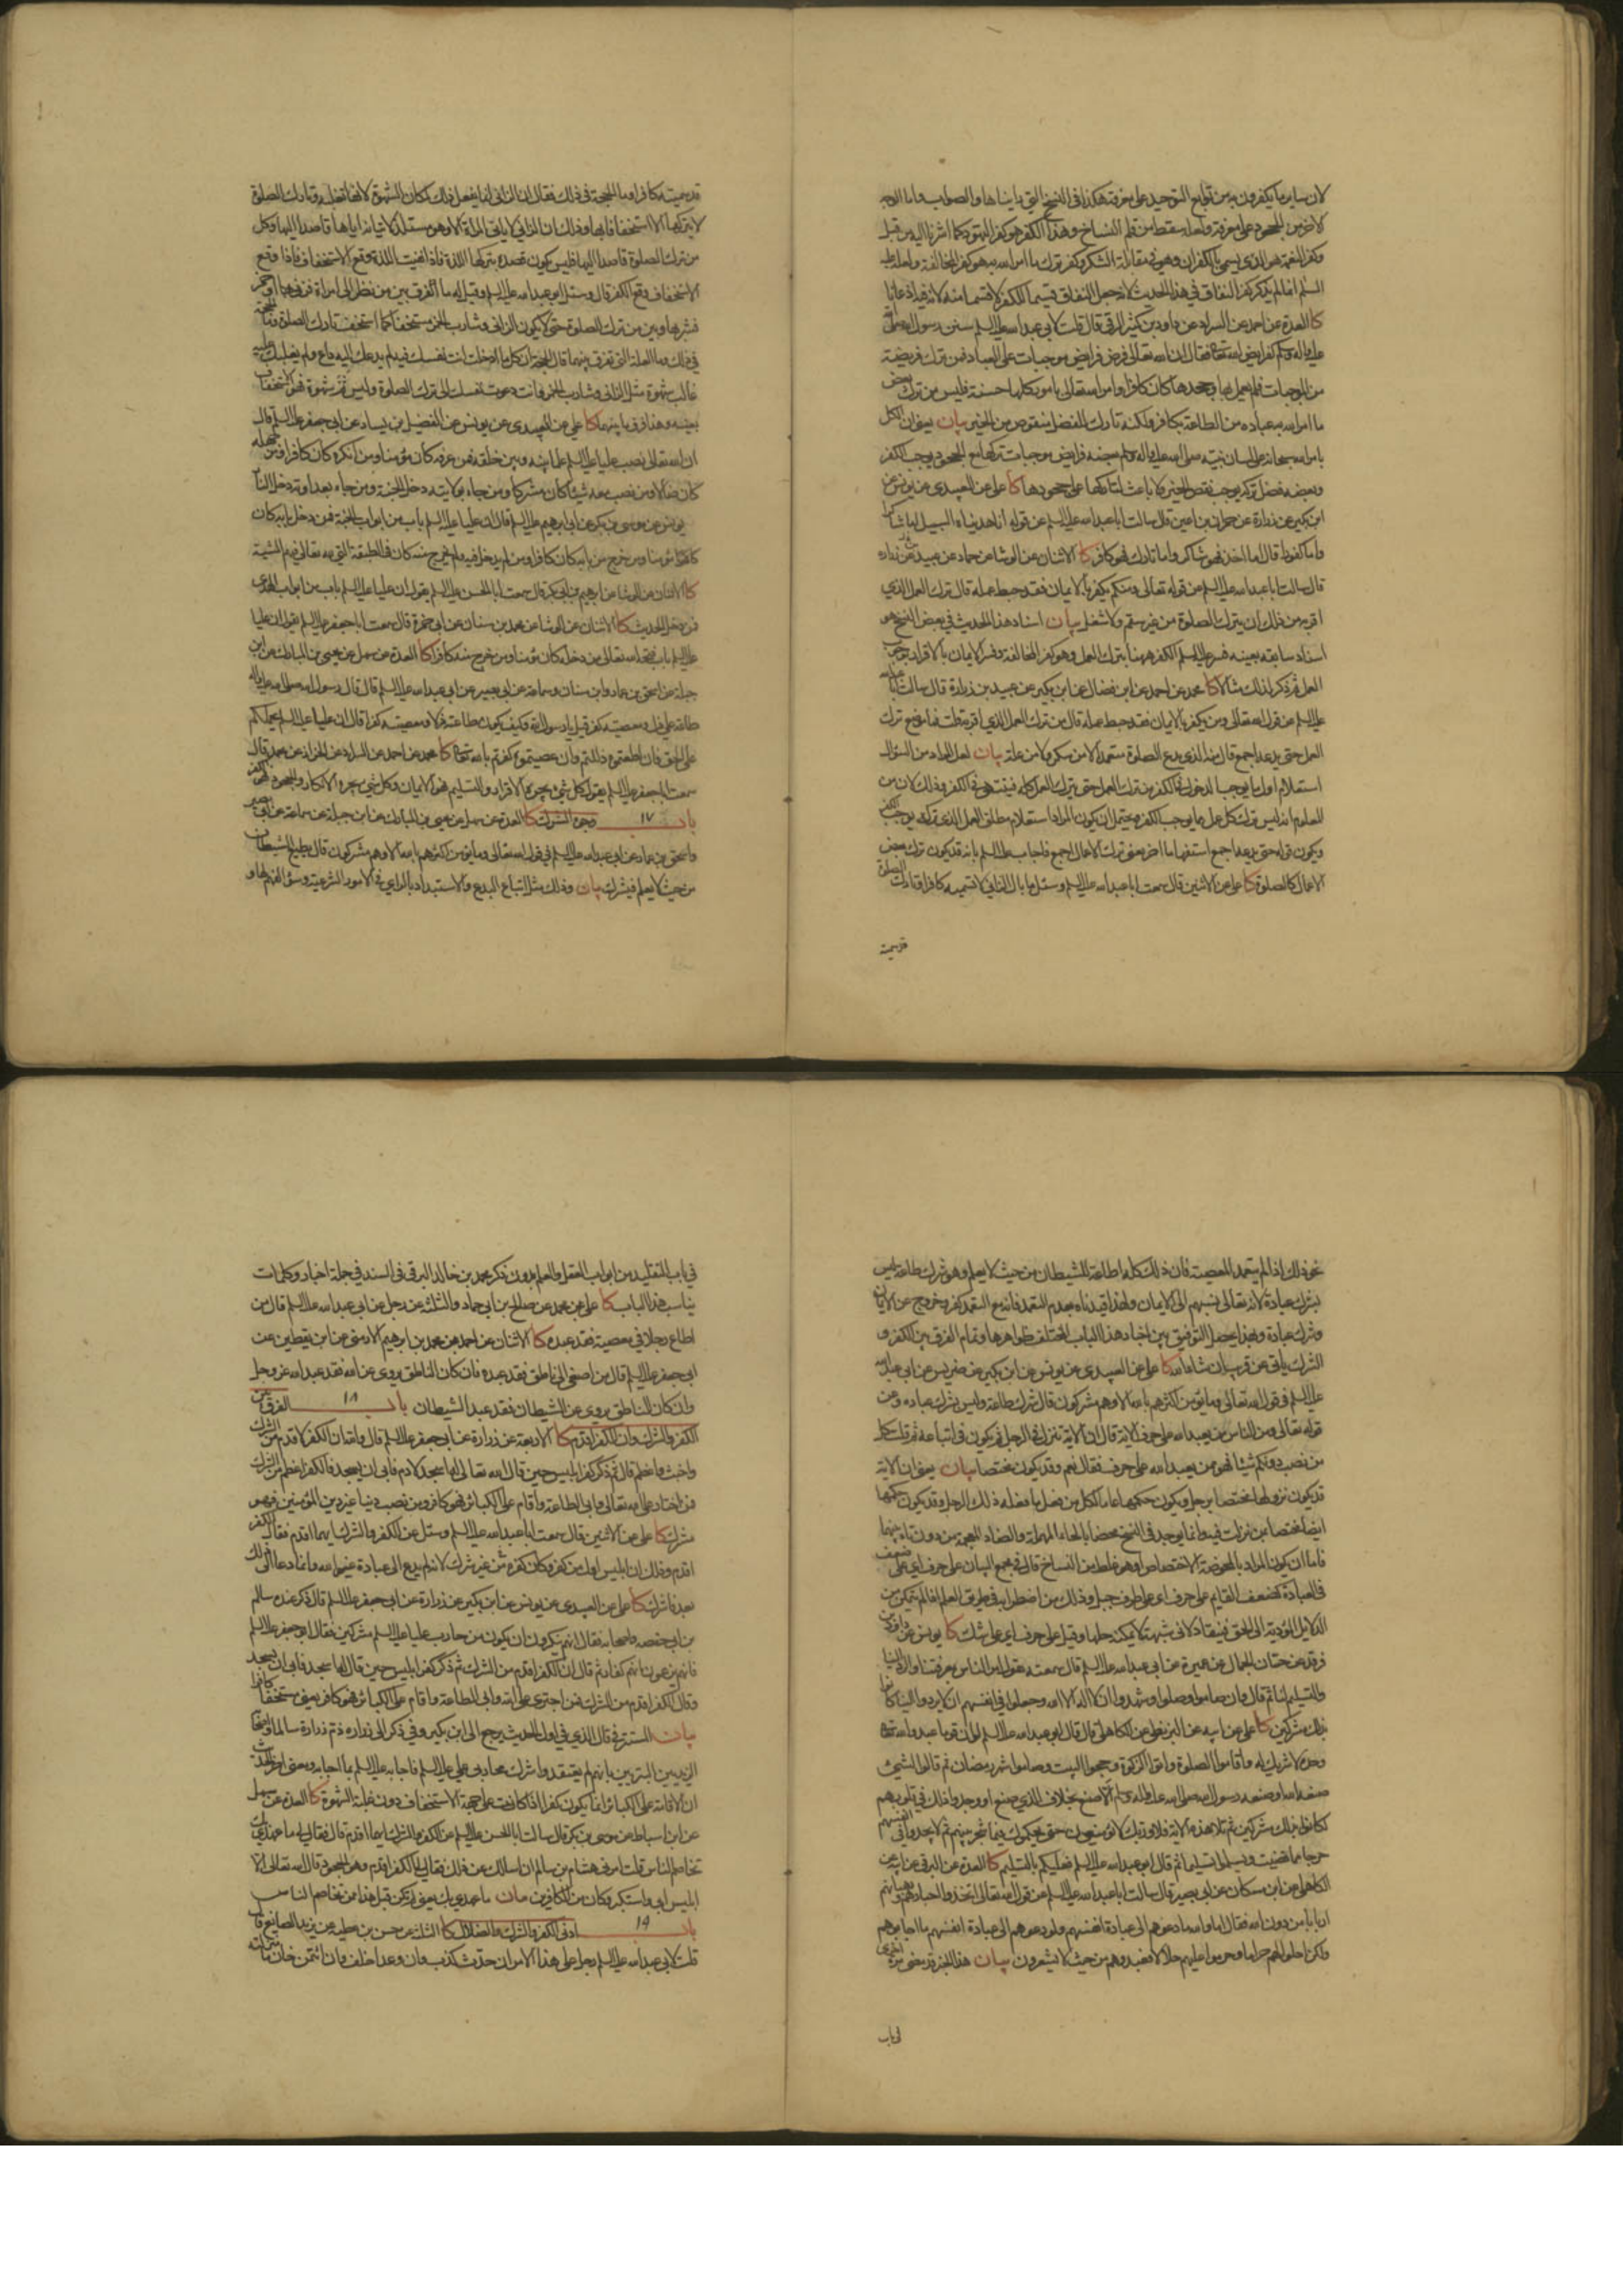 لان سايرما يكفرون به من توابع التوحيد على معرفة هكذا في النسخ التي رايناها والصواب واما الوجه
الاخر من الجحود على معرفة ولعله سقط من قلم النساخ وهذا الكفر هو كفر اليهود كما اشرنا اليه من قبل
وكفر النعمة هو الذي يسمى بالكفران وهي في مقابلة الشكر وكفر ترك ما امر الله به هو كفر المخالفة ولعله عليه
السلم انما لم يذكر كفر النفاق في هذا الحديث لانه جعل النفاق قسيما للكفر لا قسما منه
كا العدة عن احمد عن السراد عن داود بن كثير الرقي قال قلت لابي عبد الله عليه السلم سنن رسول الله صلى الله
عليه واله وسلم كفرايض الله تعالى فقال ان الله تعالى فرض فرايض موجبات على العباد فمن ترك فريضة
من الموجبات فلم يعمل بها وجحدها كان كافرا وامر الله تعالى بامور كلها حسنة فليس من ترك بعض
ما امر الله به عباده من الطاعة بكافر ولكنه تارك للفضل منقوص من الخير بيان يعني ان الكل
بامر الله سبحانه على لسان نبيه صلى الله عليه واله وسلم بعضه فرايض موجبات تركها مع الجحود يوجب الكفر
وبعضه فضل تركه يوجب نقص الخير كا علي عن العبيدي عن يونس عن
ابن بكير عن زرارة عن حمران بن اعين قال سالت ابا عبد الله عليه السلم عن قوله انا هديناه السبيل اما شاكرا
واما كفورا قال اما اخذ فهو شاكر واما تارك فهو كافر كا الاثنان عن الوشا عن حماد عن عبيد عن زرارة
قال سالت ابا عبد الله عليه السلم عن قوله تعالى ومن يكفر بالايمان فقد حبط عمله قال ترك العمل الذي
اقر به من ذلك ان يترك الصلوة من غير سقم ولا شغل بيان اسناد هذا الحديث في بعض النسخ هو
اسناد سابقه بعينه فسر عليه السلم الكفر ههنا بترك العمل وهو كفر المخالفة وفسر الايمان بالاقرار
العمل ثم ذكر لذلك مثالا كا محمد عن احمد عن ابن فضال عن ابن بكير عن عبيد بن زرارة قال سالت ابا عبد الله
عليه السلم عن قول الله تعالى ومن يكفر بالايمان فقد حبط عمله قال من ترك العمل الذي اقر به قلت فما موضع ترك
العمل حتى يدعه اجمع قال منه الذي يدع الصلوة متعمدا لا من سكر ولا من علة بيان لعل المراد من السؤال
استعلام اول ما يوجب الدخول في الكفر من ترك العمل حتى يترك العمل كله فينتهي في الكفر وذلك لان من
المعلوم انه ليس ترك كل عمل مما يوجب الكفر ويحتمل ان يكون المراد استعلام مطلق العمل الذي تركه يوجب الكفر
ويكون قوله حتى يدعه اجمع استفهاما اخر يعني ترك الاعمال اجمع فاجاب عليه السلم بانه قد يكون ترك بعض
الاعمال كالصلوة كا علي عن الاثنين قال سمعت ابا عبد الله عليه السلم وسئل ما بال الزاني لا تسميه كافرا وتارك الصلوة
قد سميته
قد سميته كافرا وما الحجة في ذلك فقال لان الزاني انما يفعل ذلك لمكان الشهوة لانها تغلبه وتارك الصلوة
لا يتركها الا استخفافا بها وذلك ان الزاني لا ياتي المراة الا وهو مستلذ لاتيانه اياها قاصدا اليها وكل
من ترك الصلوة قاصدا اليها فليس يكون قصده بتركها اللذة فاذا نفيت اللذة وقع الاستخفاف فاذا وقع
الاستخفاف وقع الكفر قال وسئل ابو عبد الله عليه السلم وقيل له ما الفرق بين من نظر الى امراة فزنى بها او خمر
فشربها وبين من ترك الصلوة حتى لا يكون الزاني وشارب الخمر مستخفا كما استخف تارك الصلوة وما الحجة
في ذلك وما العلة التي تفرق بينهما قال الحجة ان كل ما ادخلت انت نفسك فيه لم يدعك اليه داع ولم يغلبك عليه
غالب شهوة مثل الزاني وشارب الخمر وانت دعوت نفسك الى ترك الصلوة وليس ثم شهوة فهو الاستخفاف
بعينه وهذا فرق ما بينهما كا علي عن العبيدي عن يونس عن الفضيل بن يسار عن ابي جعفر عليه السلم قال
ان الله تعالى نصب عليا عليه السلم علما بينه وبين خلقه فمن عرفه كان مؤمنا ومن انكره كان كافرا ومن جهله
كان ضالا ومن نصب معه شيئا كان مشركا ومن جاء بولايته دخل الجنة ومن جاء بعداوته دخل النار
يونس عن موسى بن بكر عن ابي ابراهيم عليه السلم قال ان عليا عليه السلم باب من ابواب الجنة فمن دخل بابه كان
مؤمنا ومن خرج من بابه كان كافرا ومن لم يدخل فيه ولم يخرج منه كان في الطبقة التي لله تعالى فيهم المشية
كا الاثنان عن الوشا عن ابراهيم بن ابي بكر قال سمعت ابا الحسن عليه السلم يقول ان عليا عليه السلم باب من ابواب الهدى
فمن دخل الحديث كا الاثنان عن الوشا عن محمد بن سنان عن ابي حمزة قال سمعت ابا جعفر عليه السلم يقول ان عليا
عليه السلم باب فتحه الله تعالى من دخله كان مؤمنا ومن خرج منه كان كافرا كا العدة عن سهل عن يحيى بن المبارك عن ابن
جبلة عن اسحق بن عمار وابن سنان وسماعة عن ابي بصير عن ابي عبد الله عليه السلم قال قال رسول الله صلى الله عليه واله
طاعة علي ذل ومعصيته كفر قيل يا رسول الله وكيف يكون طاعة علي ذلا ومعصيته كفرا قال ان عليا عليه السلم يحملكم
على الحق فان اطعتموه ذللتم وان عصيتموه كفرتم بالله تعالى كا محمد عن احمد عن السراد عن الخراز عن محمد قال
سمعت ابا جعفر عليه السلم يقول كل شي يجره الاقرار والتسليم فهو الايمان وكل شي يجره الانكار والجحود فهو الكفر
باب ١٧ وجوه الشرك كا العدة عن سهل عن يحيى بن المبارك عن ابن جبلة عن سماعة عن ابي بصير
واسحق بن عمار عن ابي عبد الله عليه السلم في قول الله تعالى وما يؤمن اكثرهم بالله الا وهم مشركون قال يطيع الشيطان
من حيث لا يعلم فيشرك بيان وذلك مثل اتباع البدع والاستبداد بالراي في الامور الشرعية وسوء الفهم لها و
نحو ذلك اذا لم يتعمد المعصية فان ذلك كله اطاعة للشيطان من حيث لا يعلم وهو شرك طاعة ليس
بشرك عبادة لانه تعالى نسبهم الى الايمان ولهذا قيدناه بعدم التعمد فانه مع التعمد كفر وخروج عن الايمان
وشرك عبادة وبهذا يحصل التوفيق بين اخبار هذا الباب المختلف ظواهرها وتمام الفرق بين الكفر و
الشرك ياتي عن قريب ان شاء الله كا علي عن العبيدي عن يونس عن ابن بكير عن ضريس عن ابي عبد الله
عليه السلم في قول الله تعالى وما يؤمن اكثرهم بالله الا وهم مشركون قال شرك طاعة وليس شرك عبادة وعن
قوله تعالى ومن الناس من يعبد الله على حرف الاية قال ان الاية تنزل في الرجل ثم يكون في اتباعه ثم قلت كل
من نصب دونكم شيئا فهو ممن يعبد الله على حرف فقال نعم وقد يكون مختصا بيان يعني ان الاية
قد يكون نزولها مختصا برجل ويكون حكمها عاما لكل من فعل ما فعله ذلك الرجل وقد يكون حكمها
ايضا مختصا بمن نزلت فيه وانما يوجد في النسخ محضا بالحاء المهملة والضاد المعجمة من دون تاء بينهما
فاما ان يكون المراد بالمحوضة الاختصاص او هو غلط من النساخ قال في مجمع البيان على حرف اي على ضعف
في العبادة كضعف القايم على حرف اي على طرف جبل وذلك من اضطرابه في طريق العلم اذا لم يتمكن من
الدلايل المؤدية الى الحق فينقاد لادنى شبهة لا يمكنه حلها وقيل على حرف اي على شك كا يونس عن داود بن
فرقد عن حسان الجمال عن عميرة عن ابي عبد الله عليه السلم قال سمعته يقول امر الناس بمعرفتنا والرد الينا
والتسليم لنا ثم قال وان صاموا وصلوا وشهدوا ان لا اله الا الله وجعلوا في انفسهم ان لا يردوا الينا كانوا
بذلك مشركين كا علي عن ابيه عن البزنطي عن الكاهلي قال قال ابو عبد الله عليه السلم لو ان قوما عبدوا الله تعالى
وحده لا شريك له واقاموا الصلوة واتوا الزكوة وحجوا البيت وصاموا شهر رمضان ثم قالوا لشيء
صنعه الله او صنعه رسول الله صلى الله عليه واله وسلم الا صنع بخلاف الذي صنع او وجدوا ذلك في قلوبهم
لكانوا بذلك مشركين ثم تلا هذه الاية فلا وربك لا يؤمنون حتى يحكموك فيما شجر بينهم ثم لا يجدوا في انفسهم
حرجا مما قضيت ويسلموا تسليما ثم قال ابو عبد الله عليه السلم فعليكم بالتسليم كا العدة عن البرقي عن ابيه عن
الكاهلي عن ابن مسكان عن ابي بصير قال سالت ابا عبد الله عليه السلم عن قول الله تعالى اتخذوا احبارهم ورهبانهم
اربابا من دون الله فقال اما والله ما دعوهم الى عبادة انفسهم ولو دعوهم الى عبادة انفسهم ما اجابوهم
ولكن احلوا لهم حراما وحرموا عليهم حلالا فعبدوهم من حيث لا يشعرون بيان هذا الخبر قد مضى مرة اخرى
في باب
في باب التقليد من ابواب العقل والعلم بدون ذكر محمد بن خالد البرقي في السند في جملة اخبار وكلمات
يناسب هذا الباب كا علي عن محمد عن صالح بن ابي حماد والثلثة عن رجل عن ابي عبد الله عليه السلم قال من
اطاع رجلا في معصية فقد عبده كا الاثنان عن احمد بن محمد بن ابراهيم الارمني عن ابن يقطين عن
ابي جعفر عليه السلم قال من اصغى الى ناطق فقد عبده فان كان الناطق يروي عن الله فقد عبد الله عز وجل
وان كان الناطق يروي عن الشيطان فقد عبد الشيطان باب ١٨ الفرق بين
الكفر والشرك وان الكفر اقدم كا الاربعة عن زرارة عن ابي جعفر عليه السلم قال والله ان الكفر لاقدم من الشرك
واخبث واعظم قال ثم ذكر كفر ابليس حين قال الله تعالى له اسجد لادم فابى ان يسجد فالكفر اعظم من الشرك
فمن اختار على الله تعالى وابى الطاعة واقام على الكبائر فهو كافر ومن نصب دينا غير دين المؤمنين فهو
مشرك كا علي عن الاثنين قال سمعت ابا عبد الله عليه السلم وسئل عن الكفر والشرك ايهما اقدم فقال الكفر
اقدم وذلك ان ابليس اول من كفر وكان كفره من غير شرك لانه لم يدع الى عبادة غير الله وانما دعا الى ذلك
بعد فاشرك كا علي عن العبيدي عن يونس عن ابن بكير عن زرارة عن ابي جعفر عليه السلم قال ذكر عنده سالم
بن ابي حفصه واصحابه فقال انهم ينكرون ان يكون من حارب عليا عليه السلم مشركين فقال ابو جعفر عليه السلم
فانهم يزعمون انهم كفار ثم قال ان الكفر اقدم من الشرك ثم ذكر كفر ابليس حين قال له اسجد فابى ان يسجد
وقال الكفر اقدم من الشرك فمن اجترى على الله وابى الطاعة واقام على الكبائر فهو كافر يعني مستخفا كافرا
بيان المستتر في قال الذي في اول الحديث يرجع الى ابن بكير وفي ذكر الى زرارة ذم زرارة سالما واصحابه
الزيديين البتريين بانهم لم يعتقدوا شرك محاربي علي عليه السلم فاجابه عليه السلم بما اجابه ومعنى اخر الحديث
ان الاقامة على الكبائر انما يكون كفرا اذا كانت على جهة الاستخفاف دون غلبة الشهوة كا العدة عن سهل
عن ابن اسباط عن موسى بن بكر قال سالت ابا الحسن عليه السلم عن الكفر والشرك ايهما اقدم قال فقال لي ما عهدي بك
تخاصم الناس قلت امرني هشام بن سالم ان اسالك عن ذلك فقال لي الكفر اقدم وهو الجحود قال الله تعالى الا
ابليس ابى واستكبر وكان من الكافرين بيان ما عهدي بك يعني لم تكن قبل هذا ممن تخاصم الناس
باب ١٩ ادنى الكفر والشرك والضلال كا الثلثة عن حسن بن عطية عن يزيد الصايغ قال
قلت لابي عبد الله عليه السلم رجل على هذا الامر ان حدث كذب وان وعد اخلف وان ائتمن خان ما منزلته